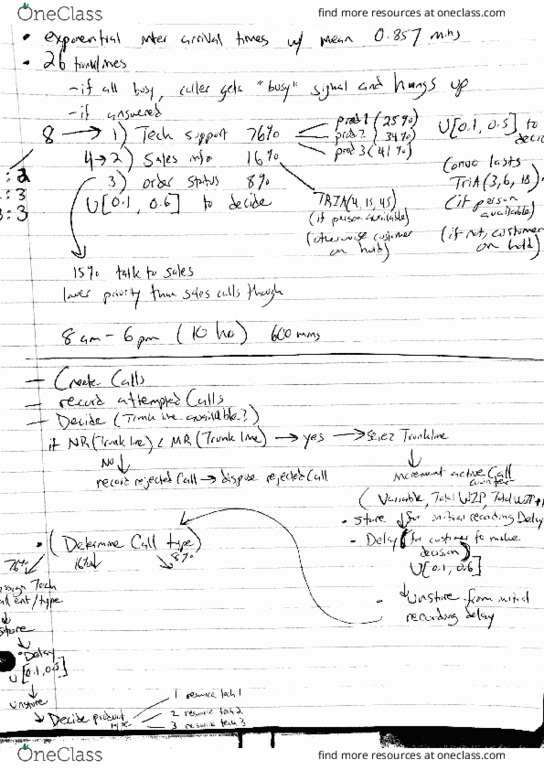 OneClass
find more resources at oneclass.com
• exponential inter arrival times w/ mean 0.857 mins
• 26 trunklines
- if all busy, caller gets "busy" signal and hangs up
- if answered
8 → 1) Tech support 76%
prod 1 (25%)
prod 2 (34%)
prod 3 (41%)
U[0.1, 0.5] to
Convo lasts
TRIA(3,6,18)
(if person available)
(if not, customer on hold)
4 → 2) Sales info 16%
TRIA(4,15,45)
(if person available)
(otherwise customer on hold)
3) order status 8%
U[0.1, 0.6] to decide
: 2
: 3
3: 3
15% talk to sales
lower priority than sales calls though
8 am - 6 pm (10 hrs) 600 mins
- Create Calls
- record attempted Calls
- Decide (Trunk line available?)
if NR(Trunk line) < MR(Trunk line) → yes → Seize Trunkline
NO ↓
record rejected Call → dispose rejected Call
↓
increment active Call counter
(Variable, Total WIP, Total WIP+1
• Store ↓ for initial recording Delay
- Delay (for customer to make decision)
U[0.1, 0.6]
↓ Unstore from initial
recording delay
• (Determine Call type)
76%
16% ↓
8%
Tech
ent/type
Store
↓
• Delay
U[0.1,0.5]
↓
Unstore
↓ Decide product type
1 resource tech 1
2 resource tech 2
3 resource tech 3
OneClass
find more resources at oneclass.com